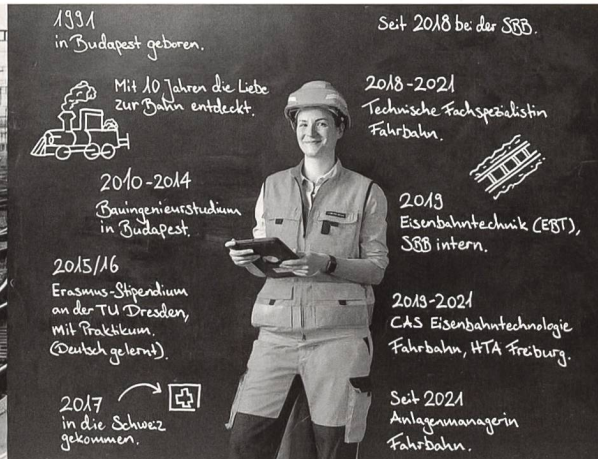 1991
in Budapest geboren.
Mit 10 Jahren die Liebe
zur Bahn entdeckt.
2010-2014
Bauingenieurstudium
in Budapest.
2015/16
Erasmus-Stipendium
an der TU Dresden,
mit Praktikum.
(Deutsch gelernt).
2017
in die Schweiz
gekommen.
Seit 2018 bei der SBB.
2018-2021
Technische Fachspezialistin
Fahrbahn.
2019
Eisenbahntechnik (EBT),
SBB intern.
2019-2021
CAS Eisenbahntechnologie
Fahrbahn, HTA Freiburg.
Seit 2021
Anlagenmanagerin
Fahrbahn.